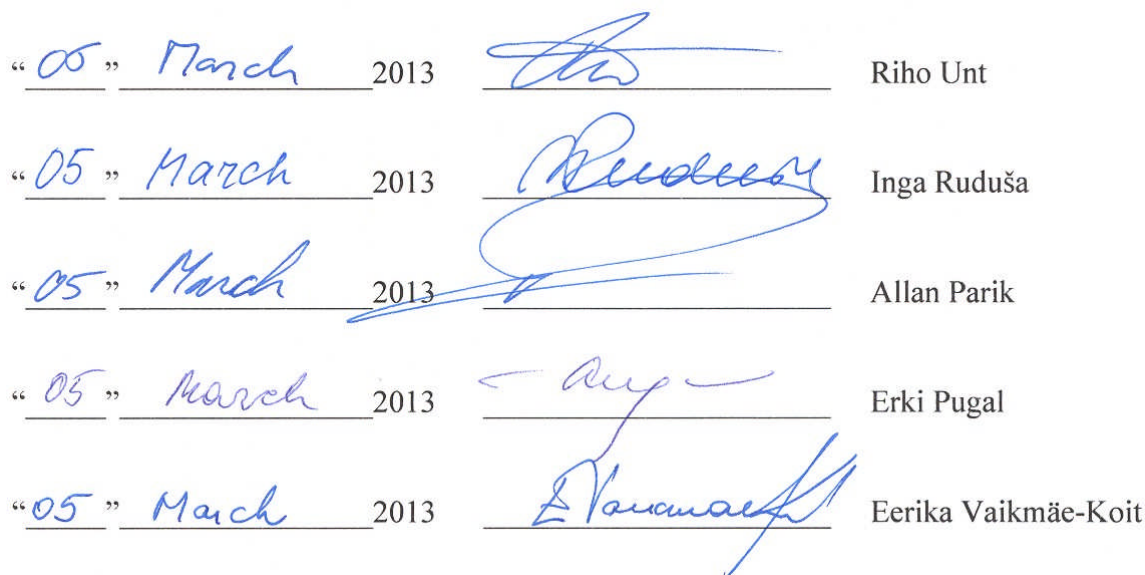 “ 05 ” March 2013 Riho Unt
“ 05 ” March 2013 Inga Ruduša
“ 05 ” March 2013 Allan Parik
“ 05 ” March 2013 Erki Pugal
“ 05 ” March 2013 Eerika Vaikmäe-Koit